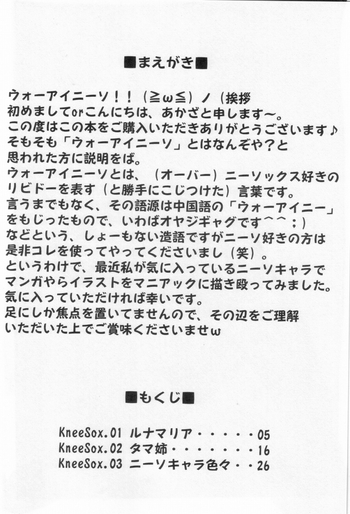 ■まえがき■
ウォーアイニーソ！！(≧ω≦)ノ(挨拶
初めましてorこんにちは、あかざと申します〜。
この度はこの本をご購入いただきありがとうございます♪
そもそも「ウォーアイニーソ」とはなんぞや？と
思われた方に説明をば。
ウォーアイニーソとは、（オーバー）ニーソックス好きの
リビドーを表す（と勝手にこじつけた）言葉です。
言うまでもなく、その語源は中国語の「ウォーアイニー」
をもじったもので、いわばオヤジギャグです＾＾：）
などという、しょーもない造語ですがニーソ好きの方は
是非コレを使ってやってくださいまし（笑）。
というわけで、最近私が気に入っているニーソキャラで
マンガやらイラストをマニアックに描き殴ってみました。
気に入っていただければ幸いです。
足にしか焦点を置いてませんので、その辺をご理解
いただいた上でご賞味くださいませω
■もくじ■
KneeSox.01 ルナマリア・・・・・05
KneeSox.02 タマ姉・・・・・・・16
KneeSox.03 ニーソキャラ色々・・26